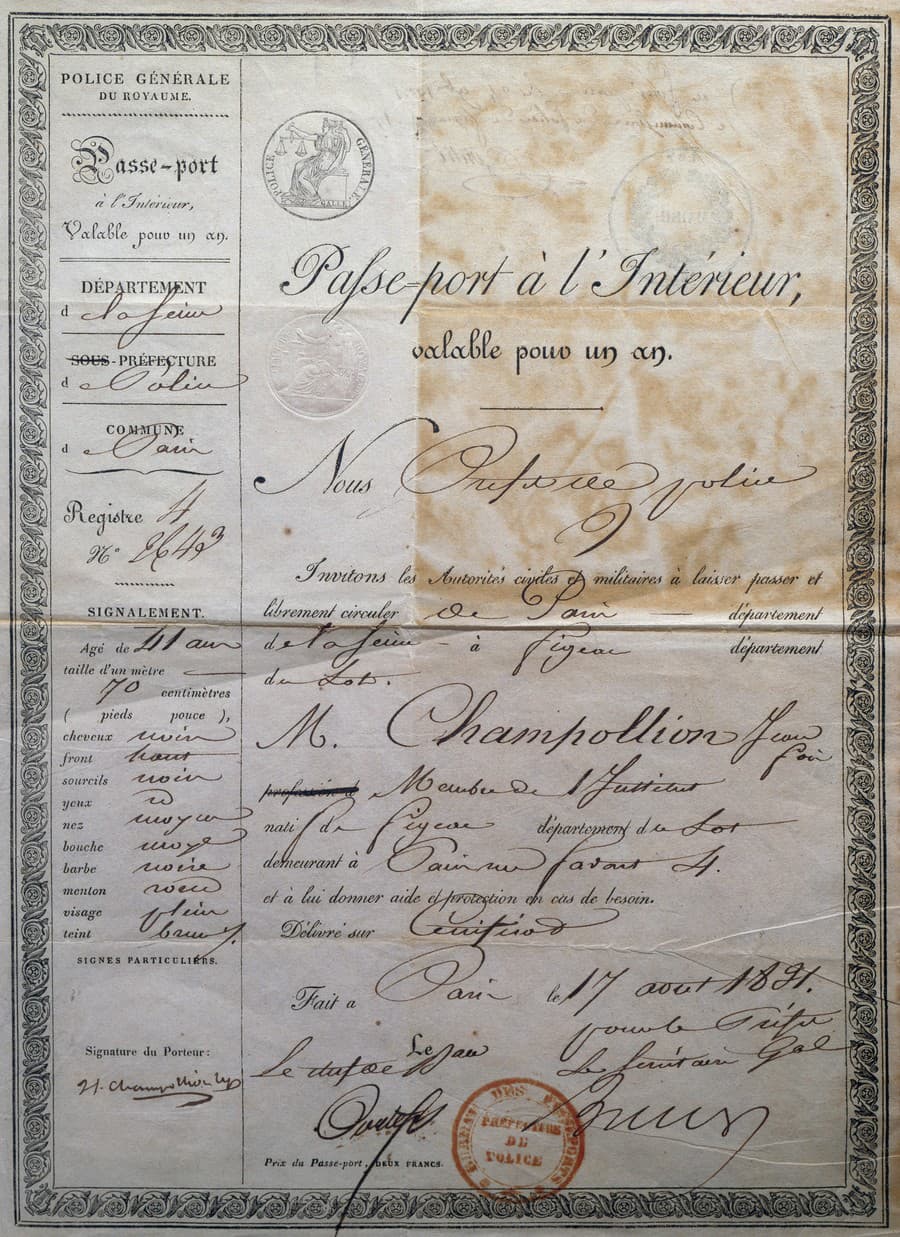 POLICE GÉNÉRALE
DU ROYAUME.
Passe-port
à l'Intérieur,
Valable pour un an.
DÉPARTEMENT
d la Seine
SOUS-PRÉFECTURE
d Police
COMMUNE
d Paris
Registre 4
N° 2643
SIGNALEMENT.
Agé de 41 ans
taille d'un mètre
70 centimètres
( pieds pouce ),
cheveux noirs
front haut
sourcils noirs
yeux id
nez moyen
bouche moye
barbe noire
menton rond
visage plein
teint brun
SIGNES PARTICULIERS.
Signature du Porteur:
Champollion
POLICE GÉNÉRALE
Passe-port à l'Intérieur,
valable pour un an.
Nous Préfet de police
Invitons les Autorités civiles et militaires à laisser passer et
librement circuler de Paris département
de la Seine à Figeac département
du Lot.
M. Champollion Jean
profession d Membre de l'Institut
natif de Figeac département du Lot
demeurant à Paris rue favart 4.
et à lui donner aide et protection en cas de besoin.
Délivré sur
Fait a Paris le 17 aout 1831.
pour le Préfet
Le
Le chef de Bau Le Secrétaire Gal
Prix du Passe-port, DEUX FRANCS.
BUREAU DES PASSEPORTS
PRÉFECTURE
DE
POLICE